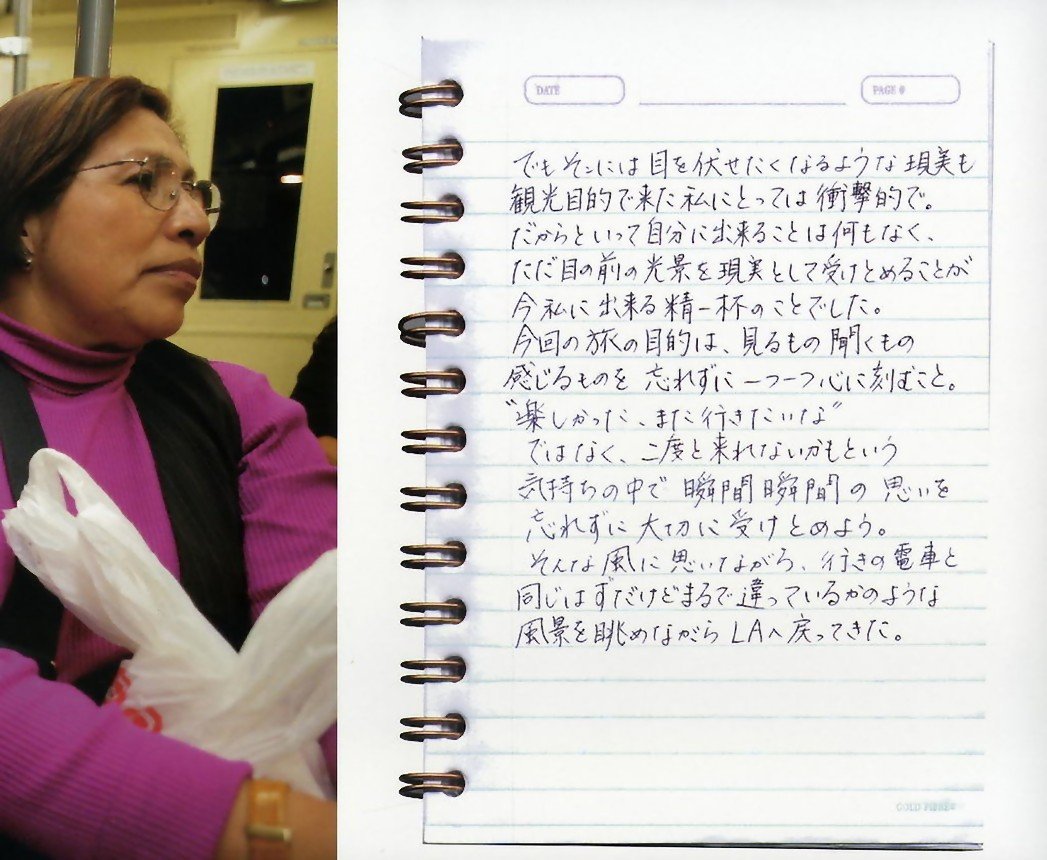 DATE
PAGE #
でもそこには目を伏せたくなるような現実も
観光目的で来た私にとっては衝撃的で。
だからといって自分に出来ることは何もなく、
ただ目の前の光景を現実として受けとめることが
今私に出来る精一杯のことでした。
今回の旅の目的は、見るもの聞くもの
感じるものを 忘れずに一つ一つ心に刻むこと。
"楽しかった、また行きたいな"
ではなく、二度と来れないかもという
気持ちの中で 瞬間瞬間の 思いを
忘れずに 大切に 受けとめよう。
そんな風に思いながら、行きの電車と
同じはずだけどまるで違っているかのような
風景を眺めながら LAへ戻ってきた。
GOLD FIBRE®